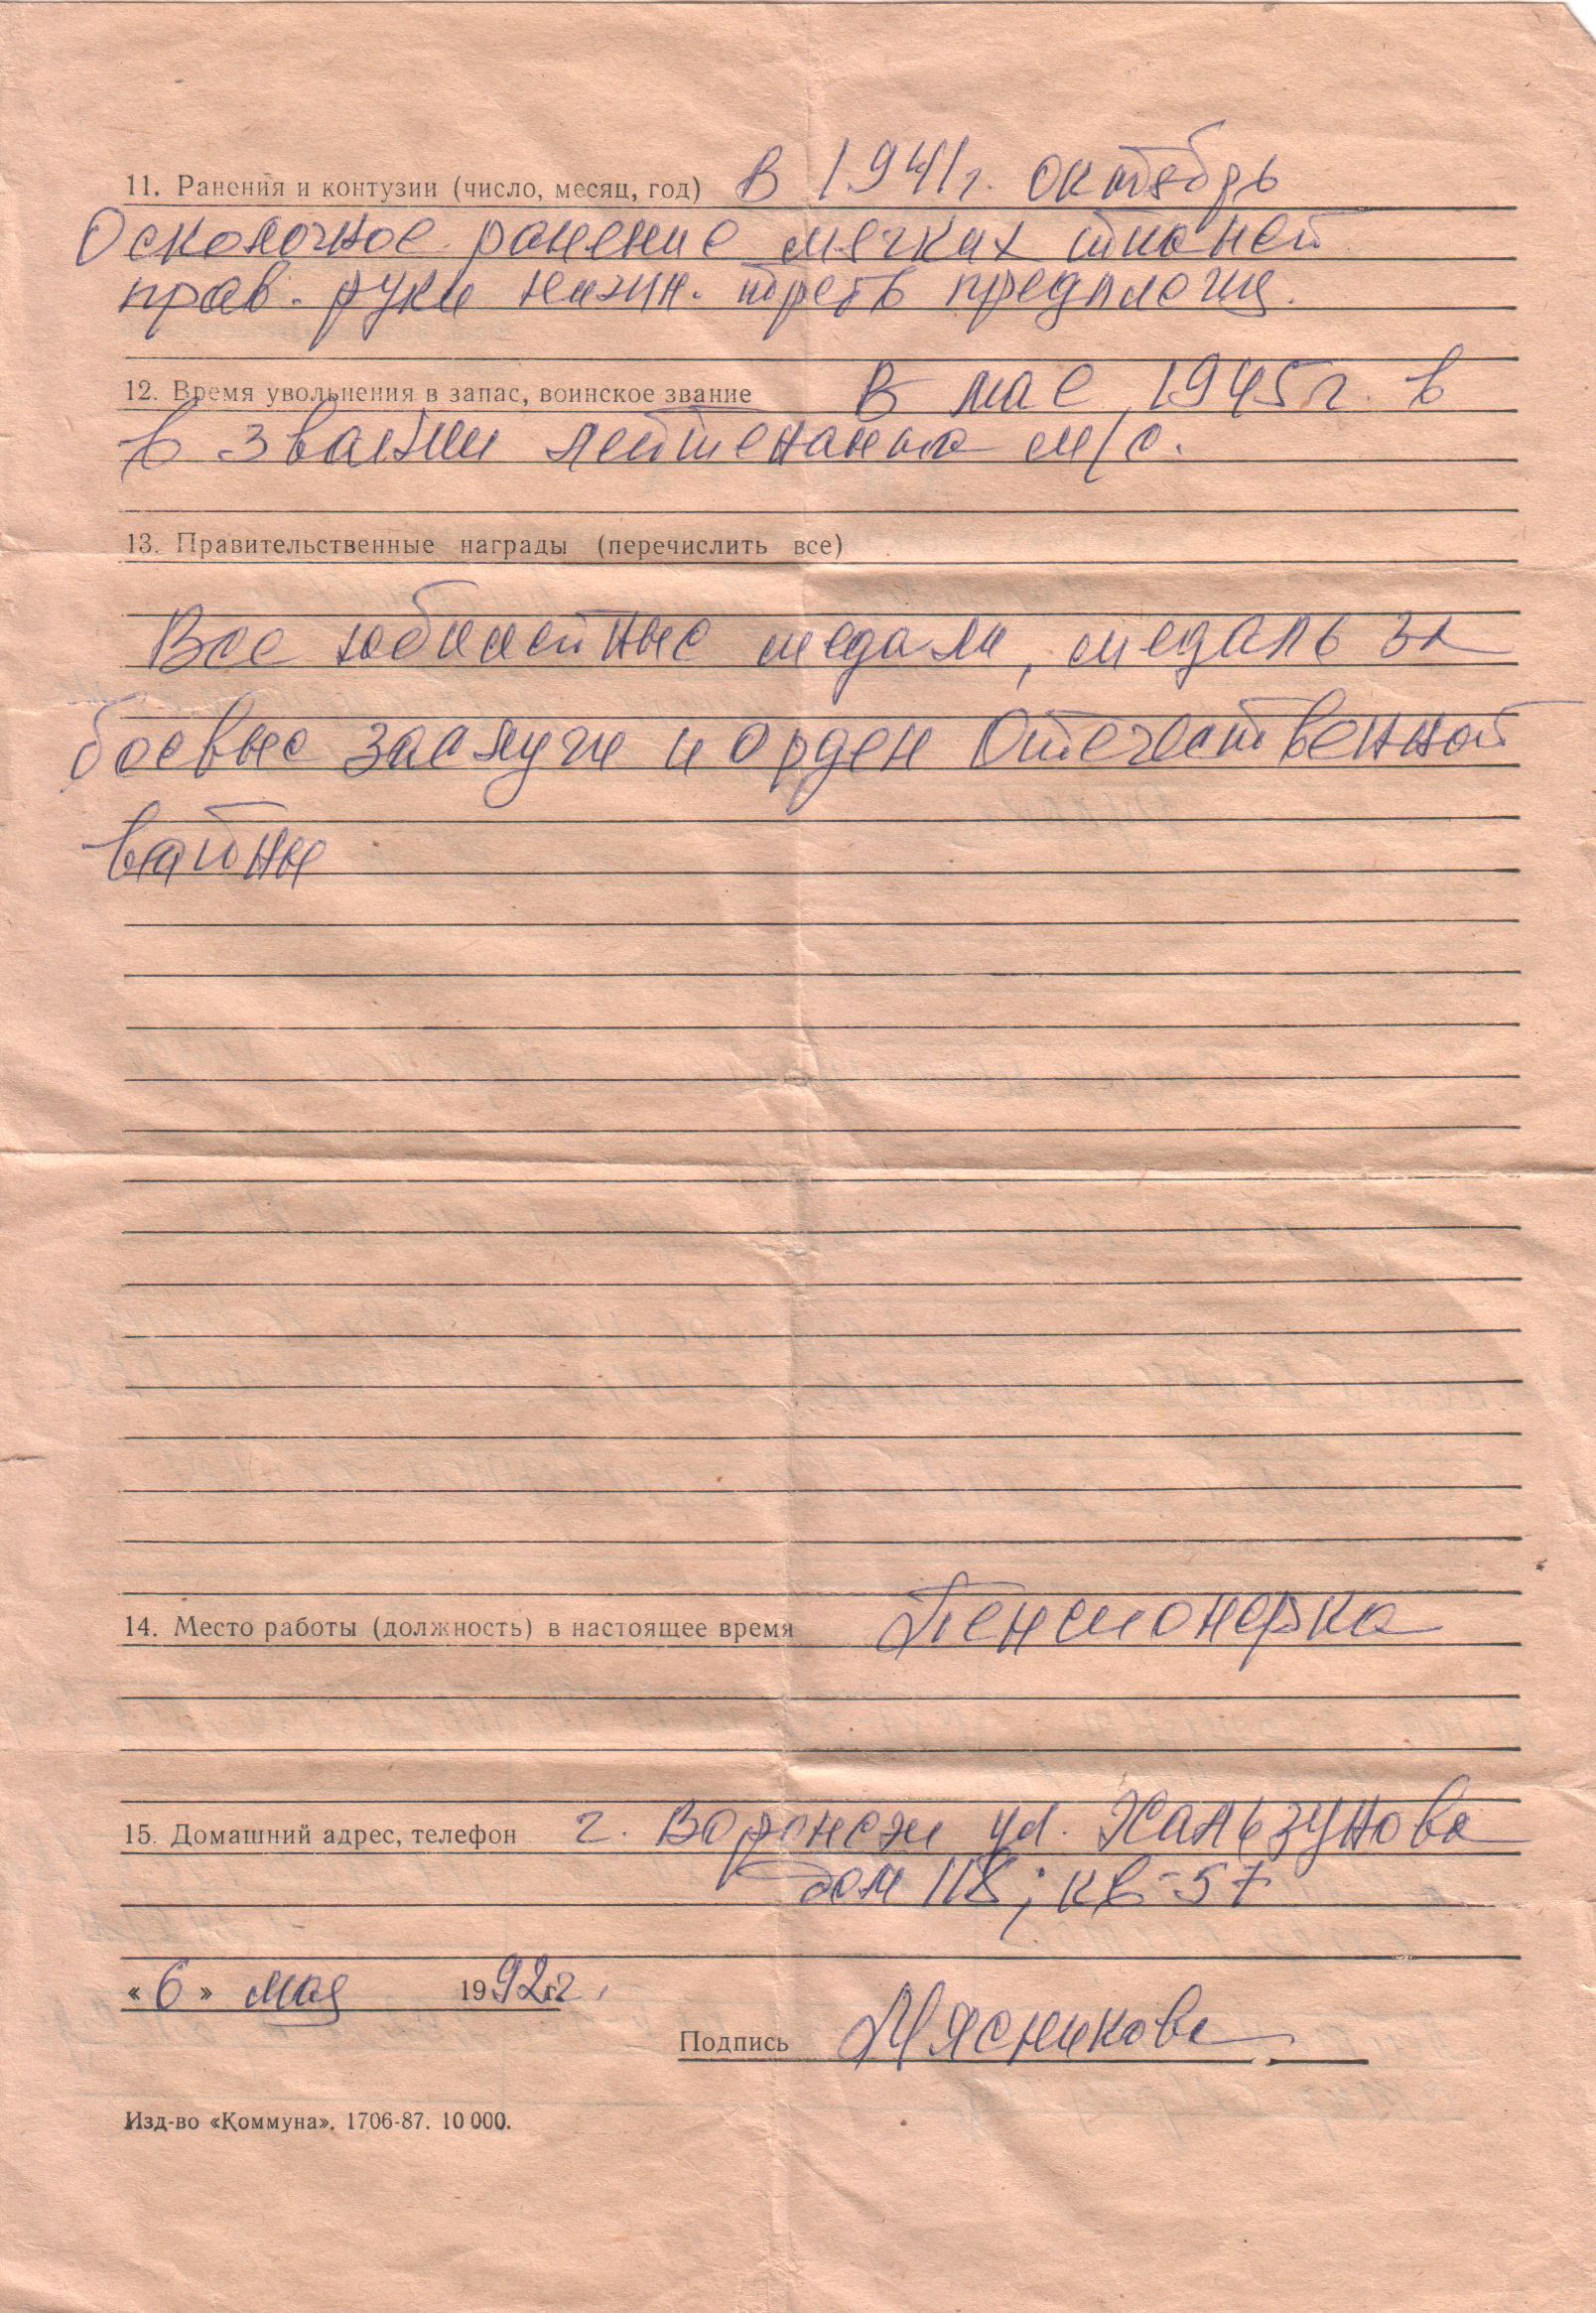 11. Ранения и контузии (число, месяц, год) В 1941 г. октябрь
Осколочное ранение мягких тканей
прав. руки нижн. треть предплечья.
12. Время увольнения в запас, воинское звание В мае 1945 г. в
в звании лейтенанта м/с.
13. Правительственные награды (перечислить все)
Все юбилейные медали, медаль за
боевые заслуги и орден Отечественной
войны
14. Место работы (должность) в настоящее время Пенсионерка
15. Домашний адрес, телефон г. Воронеж ул. Хользунова
дом 118; кв-57
«6» мая 1992 г.
Подпись Мясникова
Изд-во «Коммуна». 1706-87. 10 000.